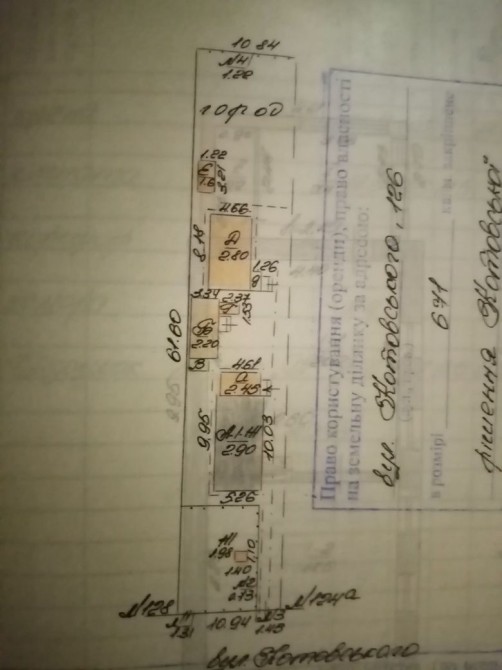 10.84
N4
1.22
город
1.22
3.21
4.66
8.18
Д
2.80
1.26
3.34
2.37
1.55
Б
2.20
61.80
В
4.61
а
2.45
9.95
А-1-Ж
2.90
10.03
5.26
1.98
1.10
1.40
N2
0.73
N128
1.31
10.94
N3
1.49
N124а
вул. Котовського
Право користування (оренди), право власності
на земельну ділянку за адресою:
вул. Котовського, 126
в розмірі 671
рішення Котовської